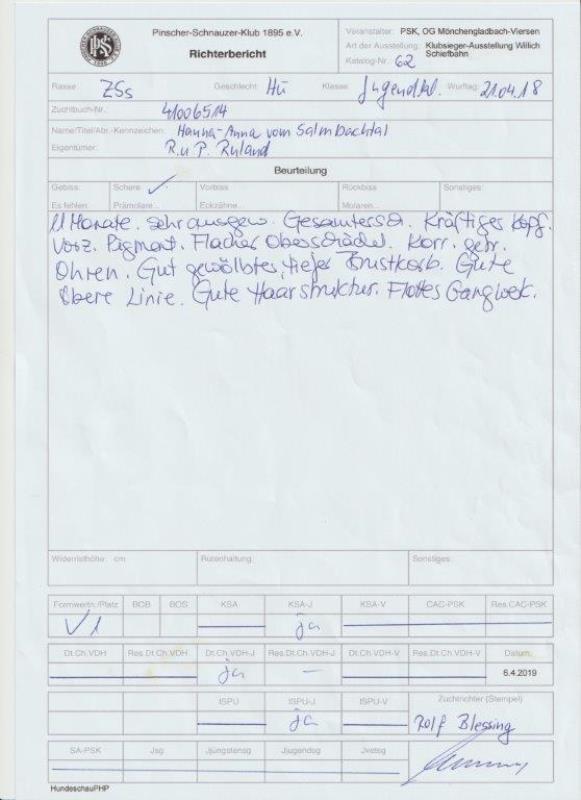 Pinscher-Schnauzer-Klub 1895 e.V.
Richterbericht
Veranstalter: PSK, OG Mönchengladbach-Viersen
Art der Ausstellung: Klubsieger-Ausstellung Willich Schiefbahn
Katalog-Nr. 62
Rasse ZSs Geschlecht Hü Klasse Jugendkl. Wurftag 21.04.18
Zuchtbuch-Nr.: 41006514
Name/Titel/Abr.-Kennzeichen: Hanna-Anna vom Salmbachtal
Eigentümer: R. u P. Ruland
Beurteilung
Gebiss: Schere ✓ Vorbiss Rückbiss Sonstiges:
Es fehlen: Prämolare... Eckzähne... Molaren...
11 Monate. sehr ausgew. Gesamterssch. Kräftiger Kopf.
Vorz. Pigment. Flacher Oberschädel. Korr. getr.
Ohren. Gut gewölbter, tiefer Brustkorb. Gute
obere Linie. Gute Haarstruktur. Flottes Gangwerk.
Widerristhöhe: cm Rutenhaltung: Sonstiges:
Formwertn./Platz BOB BOS KSA KSA-J KSA-V CAC-PSK Res.CAC-PSK
V1 ja
Dt.Ch.VDH Res.Dt.Ch.VDH Dt.Ch.VDH-J Res.Dt.Ch.VDH-J Dt.Ch.VDH-V Res.Dt.Ch.VDH-V Datum:
ja – 6.4.2019
ISPU ISPU-J ISPU-V Zuchtrichter (Stempel)
ja Rolf Blessing
SA-PSK Jsg Jjüngstensg Jjugendsg Jvetsg
HundeschauPHP